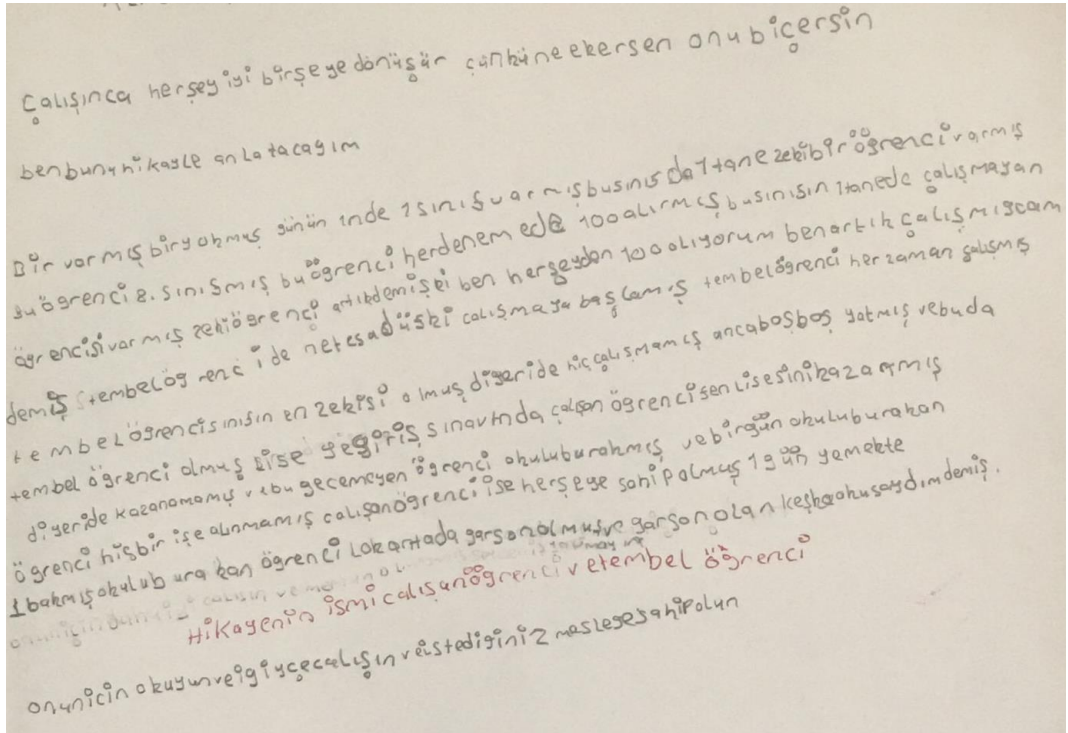 Çalışınca herşey iyi birşeye dönüşür çünküne ekersen onu biçersin
ben bunu hikayle anlatacağım
Bir varmış biryokmuş günün inde 1 sınıf varmış busınıf da 1 tane zekibir öğrenci varmış
bu öğrenci 8. sınıfmış bu öğrenci herdenemede 100 alırmış busınıfın 1tanede çalışmayan
öğrencisi varmış zeki öğrenci artıkdemişki ben herşeyden 100 alıyorum ben artık çalışmıscam
demiş tembelöğrenci de netesadüfki calışmaya başlamış tembelöğrenci herzaman çalışmış
tembel öğrenci sınıfın en zekisi olmuş diğeride hiç çalışmamış ancaboşboş yatmış vebuda
tembel öğrenci olmuş lise yegiriş sınavında çalışan öğrencifen lisesinikazanmış
diğeride kazanamamış vebugecemeyen öğrenci okuluburakmış vebirgün okuluburakan
öğrenci hişbir işe alınmamış calışanöğrenci ise herşeye sahipolmuş 1gün yemekte
1 bakmışokulub ura kan öğrenci Lokantada garsonolmuşve garson olan keşke okusaydım demiş.
Hikayenin ismi calışanöğrenci vetembel öğrenci
onuniçin okuyunveigiyçecalışın veistediğiniz mesleğesahipolun